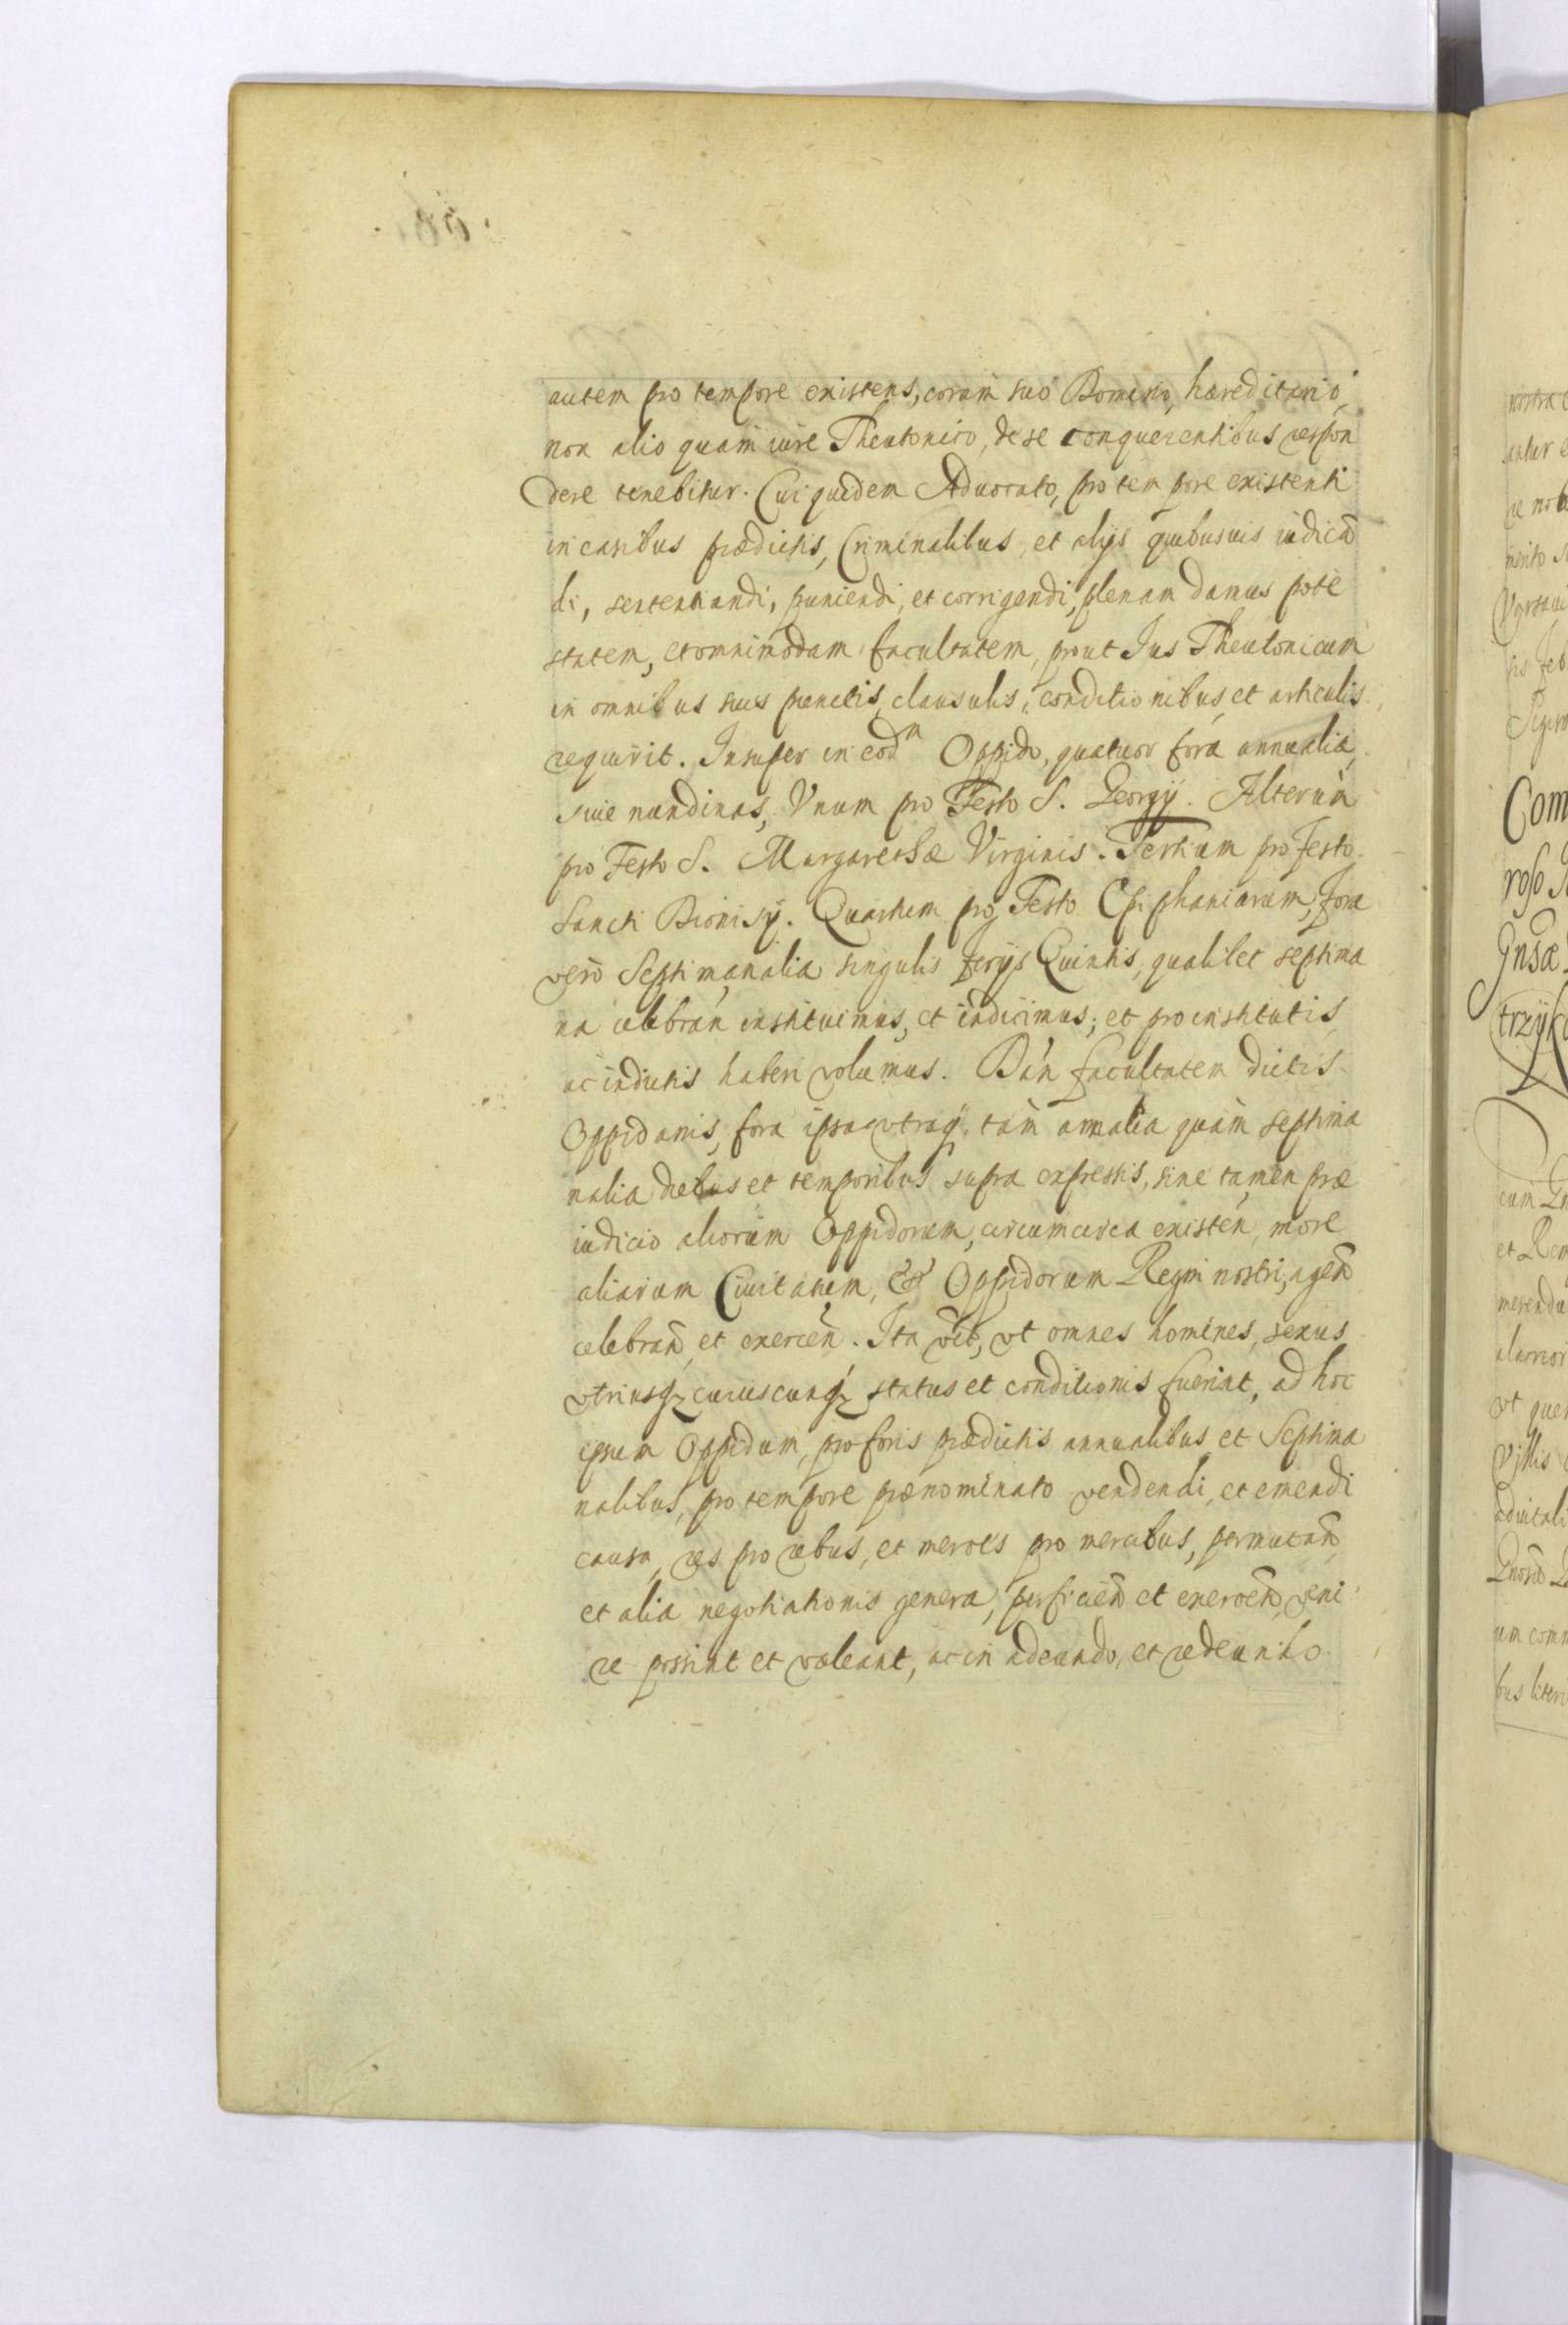 autem pro tempore existens, coram suo Domino, hæreditario,
non alio quam iure Theutonico, de se conquerentibus respon
dere tenebitur. Cui quidem Aduocato, pro tempore existenti
in casibus prædictis, Criminalibus, et alijs quibusuis iudicã
di, sententiandi, puniendi, et corrigendi, plenam damus pote
statem, et omnimodam facultatem, prout Ius Theutonicum
in omnibus suis punctis, clausulis, conditionibus, et articulis
requirit. Insuper in eodm Oppido, quatuor fora annualia,
siue nundinas, Vnum pro Festo S. Georgij. Alterum
pro Festo S. Margarethæ Virginis. Tertium pro Festo
Sancti Dionisij. Quartum pro Festo Epiphaniarum, fora
vero Septimanalia singulis ferijs Quintis, qualibet septima
na celebran instituimus, et indicimus; et pro institutis
ac indictis haberi volumus. Dan facultatem dictis
Oppidanis, fora ipsa vtraq, tam annalia quàm septima
nalia diebus et temporibus supra expressis, sine tamen præ
iudicio aliorum Oppidorum, circumcirca existen, more
aliarum Ciuitatum, & Oppidorum Regni nostri, agen
celebran, et exercen. Ita vt, vt omnes homines, sexus
vtriusq, cuiuscunq, status et conditionis fuerint, ad hoc
ipsum Oppidum, pro foris prædictis annualibus et Septima
nalibus, pro tempore prænominato vendendi, et emendi
causa, res pro rebus, et merces pro mercibus, permutan
et alia negotiationis genera, perficien et exercen, veni
re possint et valeant, ac in adeundo, et redeundo